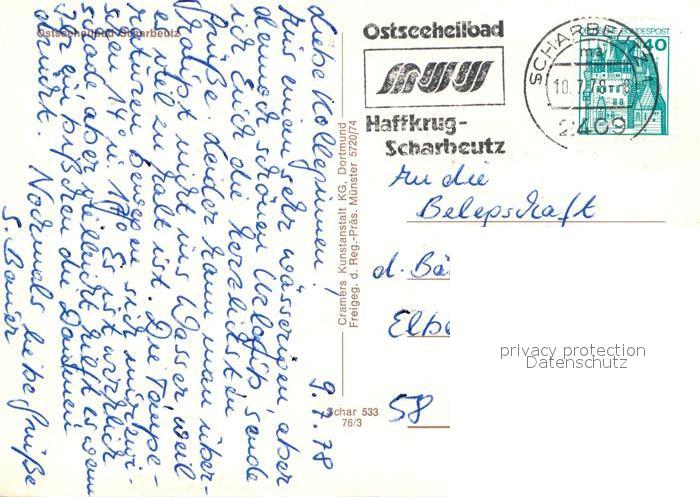 Ostseeheilbad Scharbeutz
9.7.78
Liebe Kolleginnen!
Aus einem sehr wässerigen, aber
dennoch schönen Urlaub, sende
ich Euch die herzlichsten
Grüße. Leider kann man über-
haupt nicht ins Wasser weil
es viel zu kalt ist. Die Tempe-
raturen bewegen sich zwi-
schen 14° u. 17°. Es ist wirklich
schade aber vielleicht hilft es wenn
Ihr ein bißchen die Daumen
drückt. Nochmals liebe Grüße
S. Bauer
Cramers Kunstanstalt KG, Dortmund
Freigeg. d. Reg.-Präs. Münster 5720/74
Schar 533
76/3
Ostseeheilbad
Haffkrug-
Scharbeutz
SCHARBEUTZ 1
ma
10.7.78
2409
DEUTSCHE BUNDESPOST
40
An die
Belegschaft
d. Bä
Elbe
58
privacy protection
Datenschutz